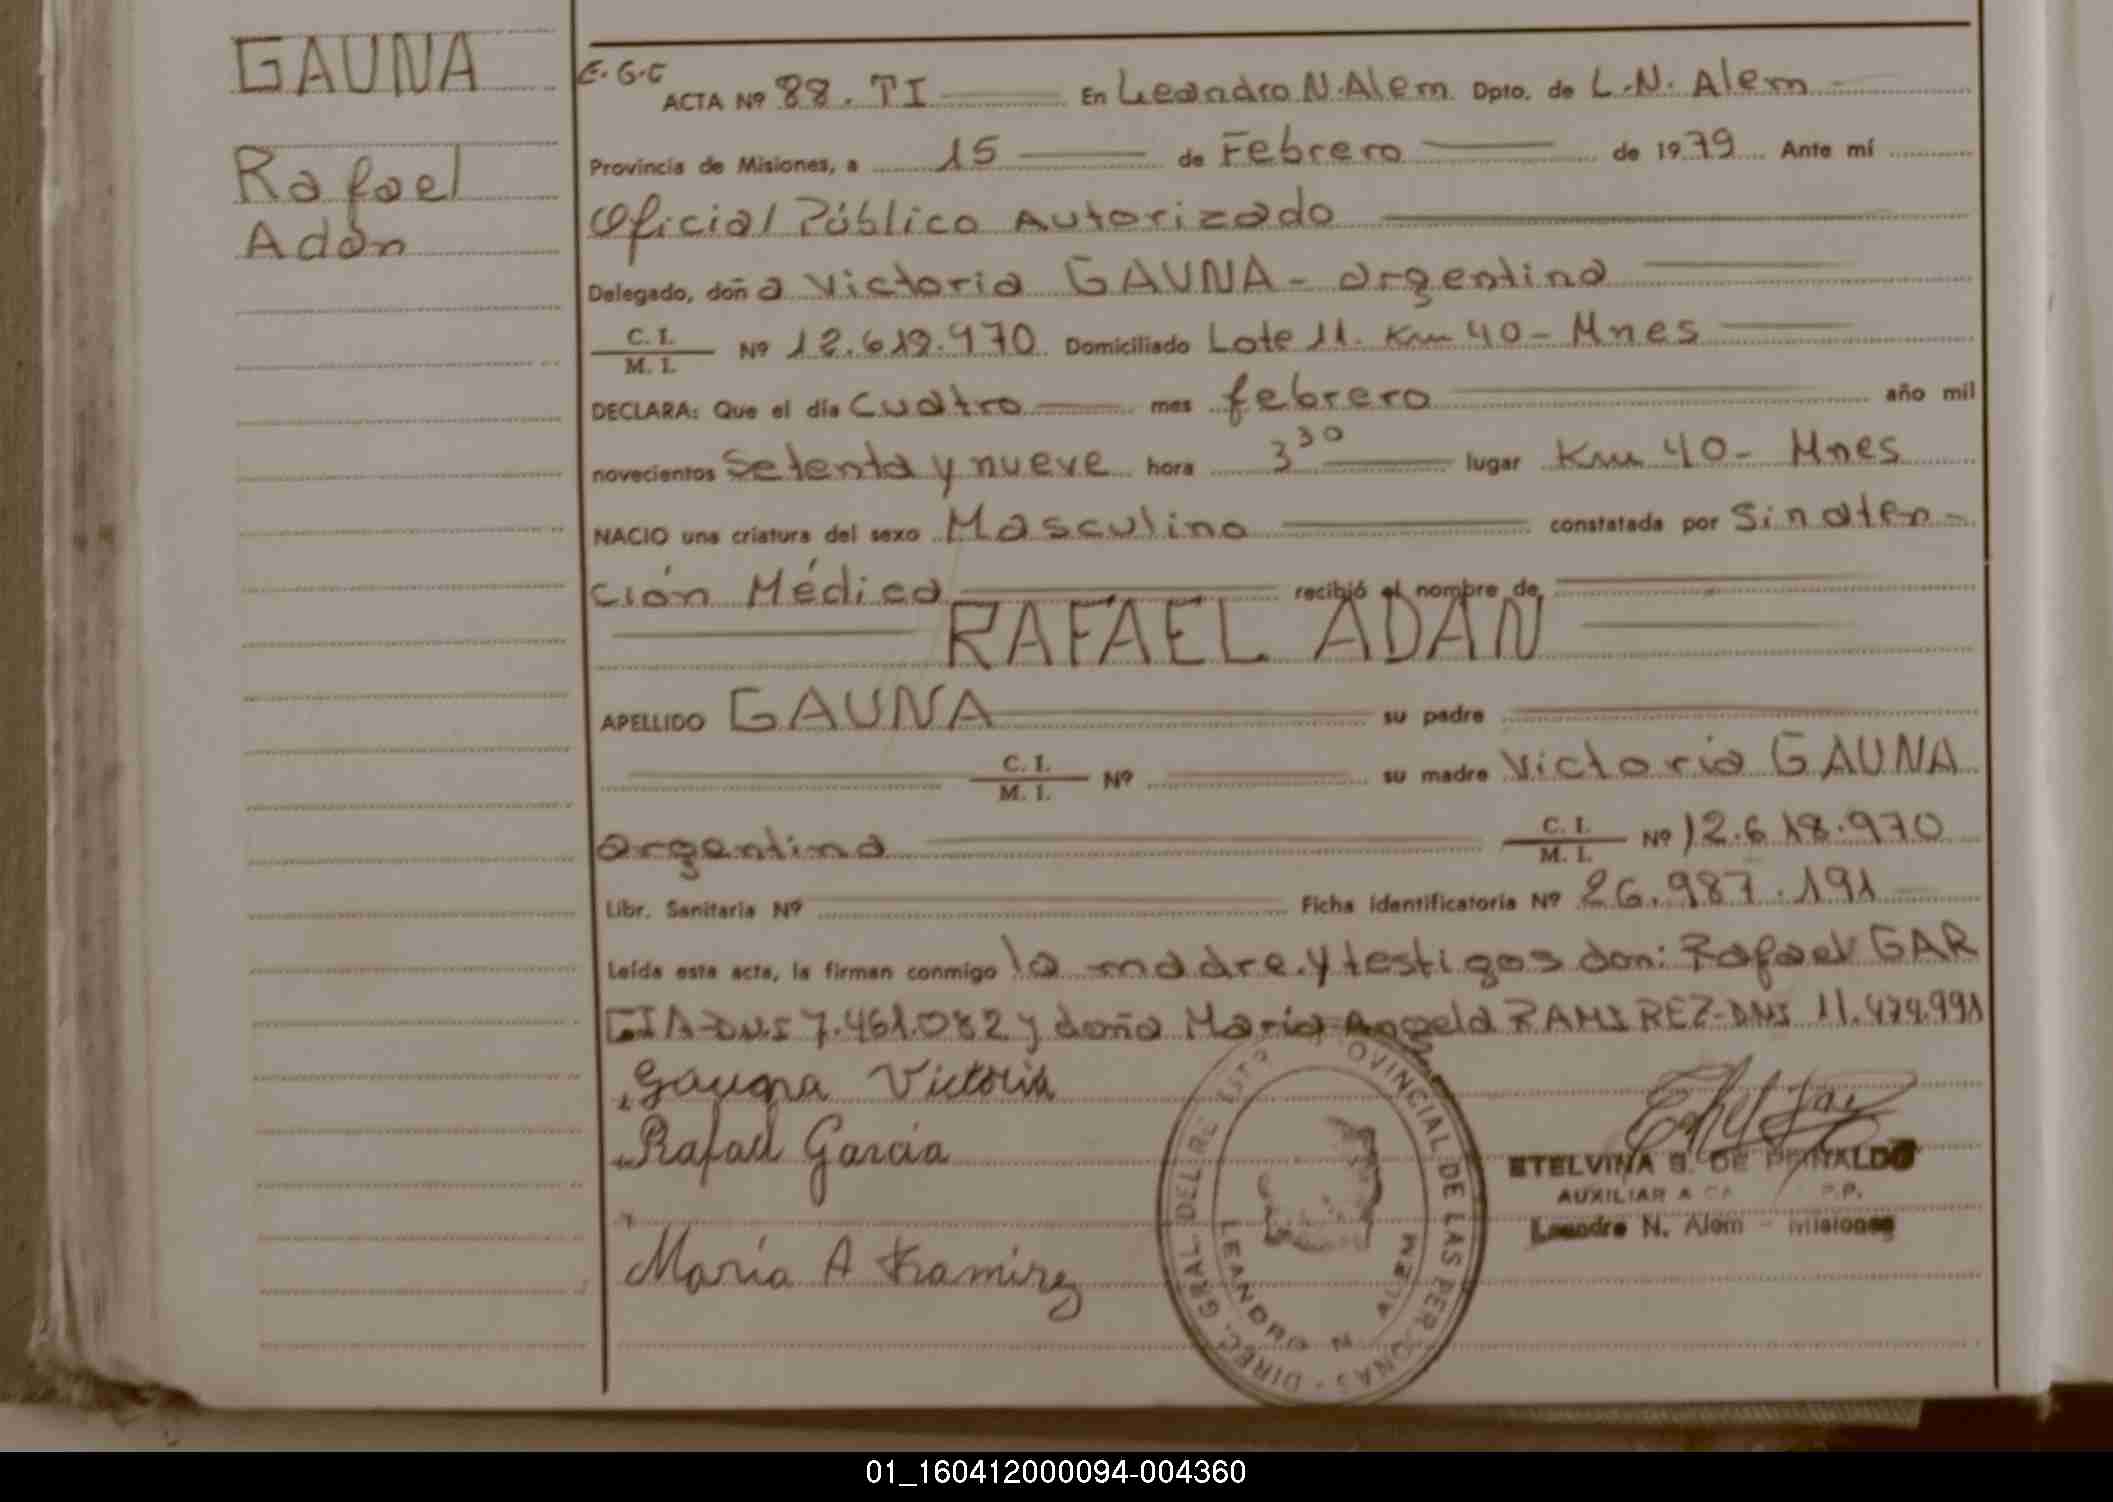 GAUNA
Rafael
Adán
E.G.C
ACTA Nº 88. TI En Leandro N. Alem Dpto. de L.N. Alem
Provincia de Misiones, a 15 de Febrero de 1979 Ante mí
Oficial Público Autorizado
Delegado, doña Victoria GAUNA - argentina
C. I.
M. I. Nº 12.618.970 Domiciliado Lote 11. Km 40 - Mnes
DECLARA: Que el día cuatro mes febrero año mil
novecientos setenta y nueve hora 3 30 lugar Km 40 - Mnes
NACIO una criatura del sexo Masculino constatada por Sin aten-
ción Médica recibió el nombre de
RAFAEL ADAN
APELLIDO GAUNA su padre
C. I.
M. I. Nº su madre Victoria GAUNA
argentina C. I.
M. I. Nº 12.618.970
Libr. Sanitaria Nº Ficha identificatoria Nº 26.987.191
Leída esta acta, la firman conmigo la madre y testigos don: Rafael GAR
CIA-DNI 7.461.082 y doña Maria Angela RAMIREZ-DNI 11.474.991
Gauna Victoria
Rafael Garcia
María A Ramirez
DIREC. GRAL. DEL RE EST PROVINCIAL DE LAS PERSONAS
LEANDRO N ALEM
ETELVINA S. DE
AUXILIAR A P.P.
Leandro N. Alem - Misiones
01_160412000094-004360